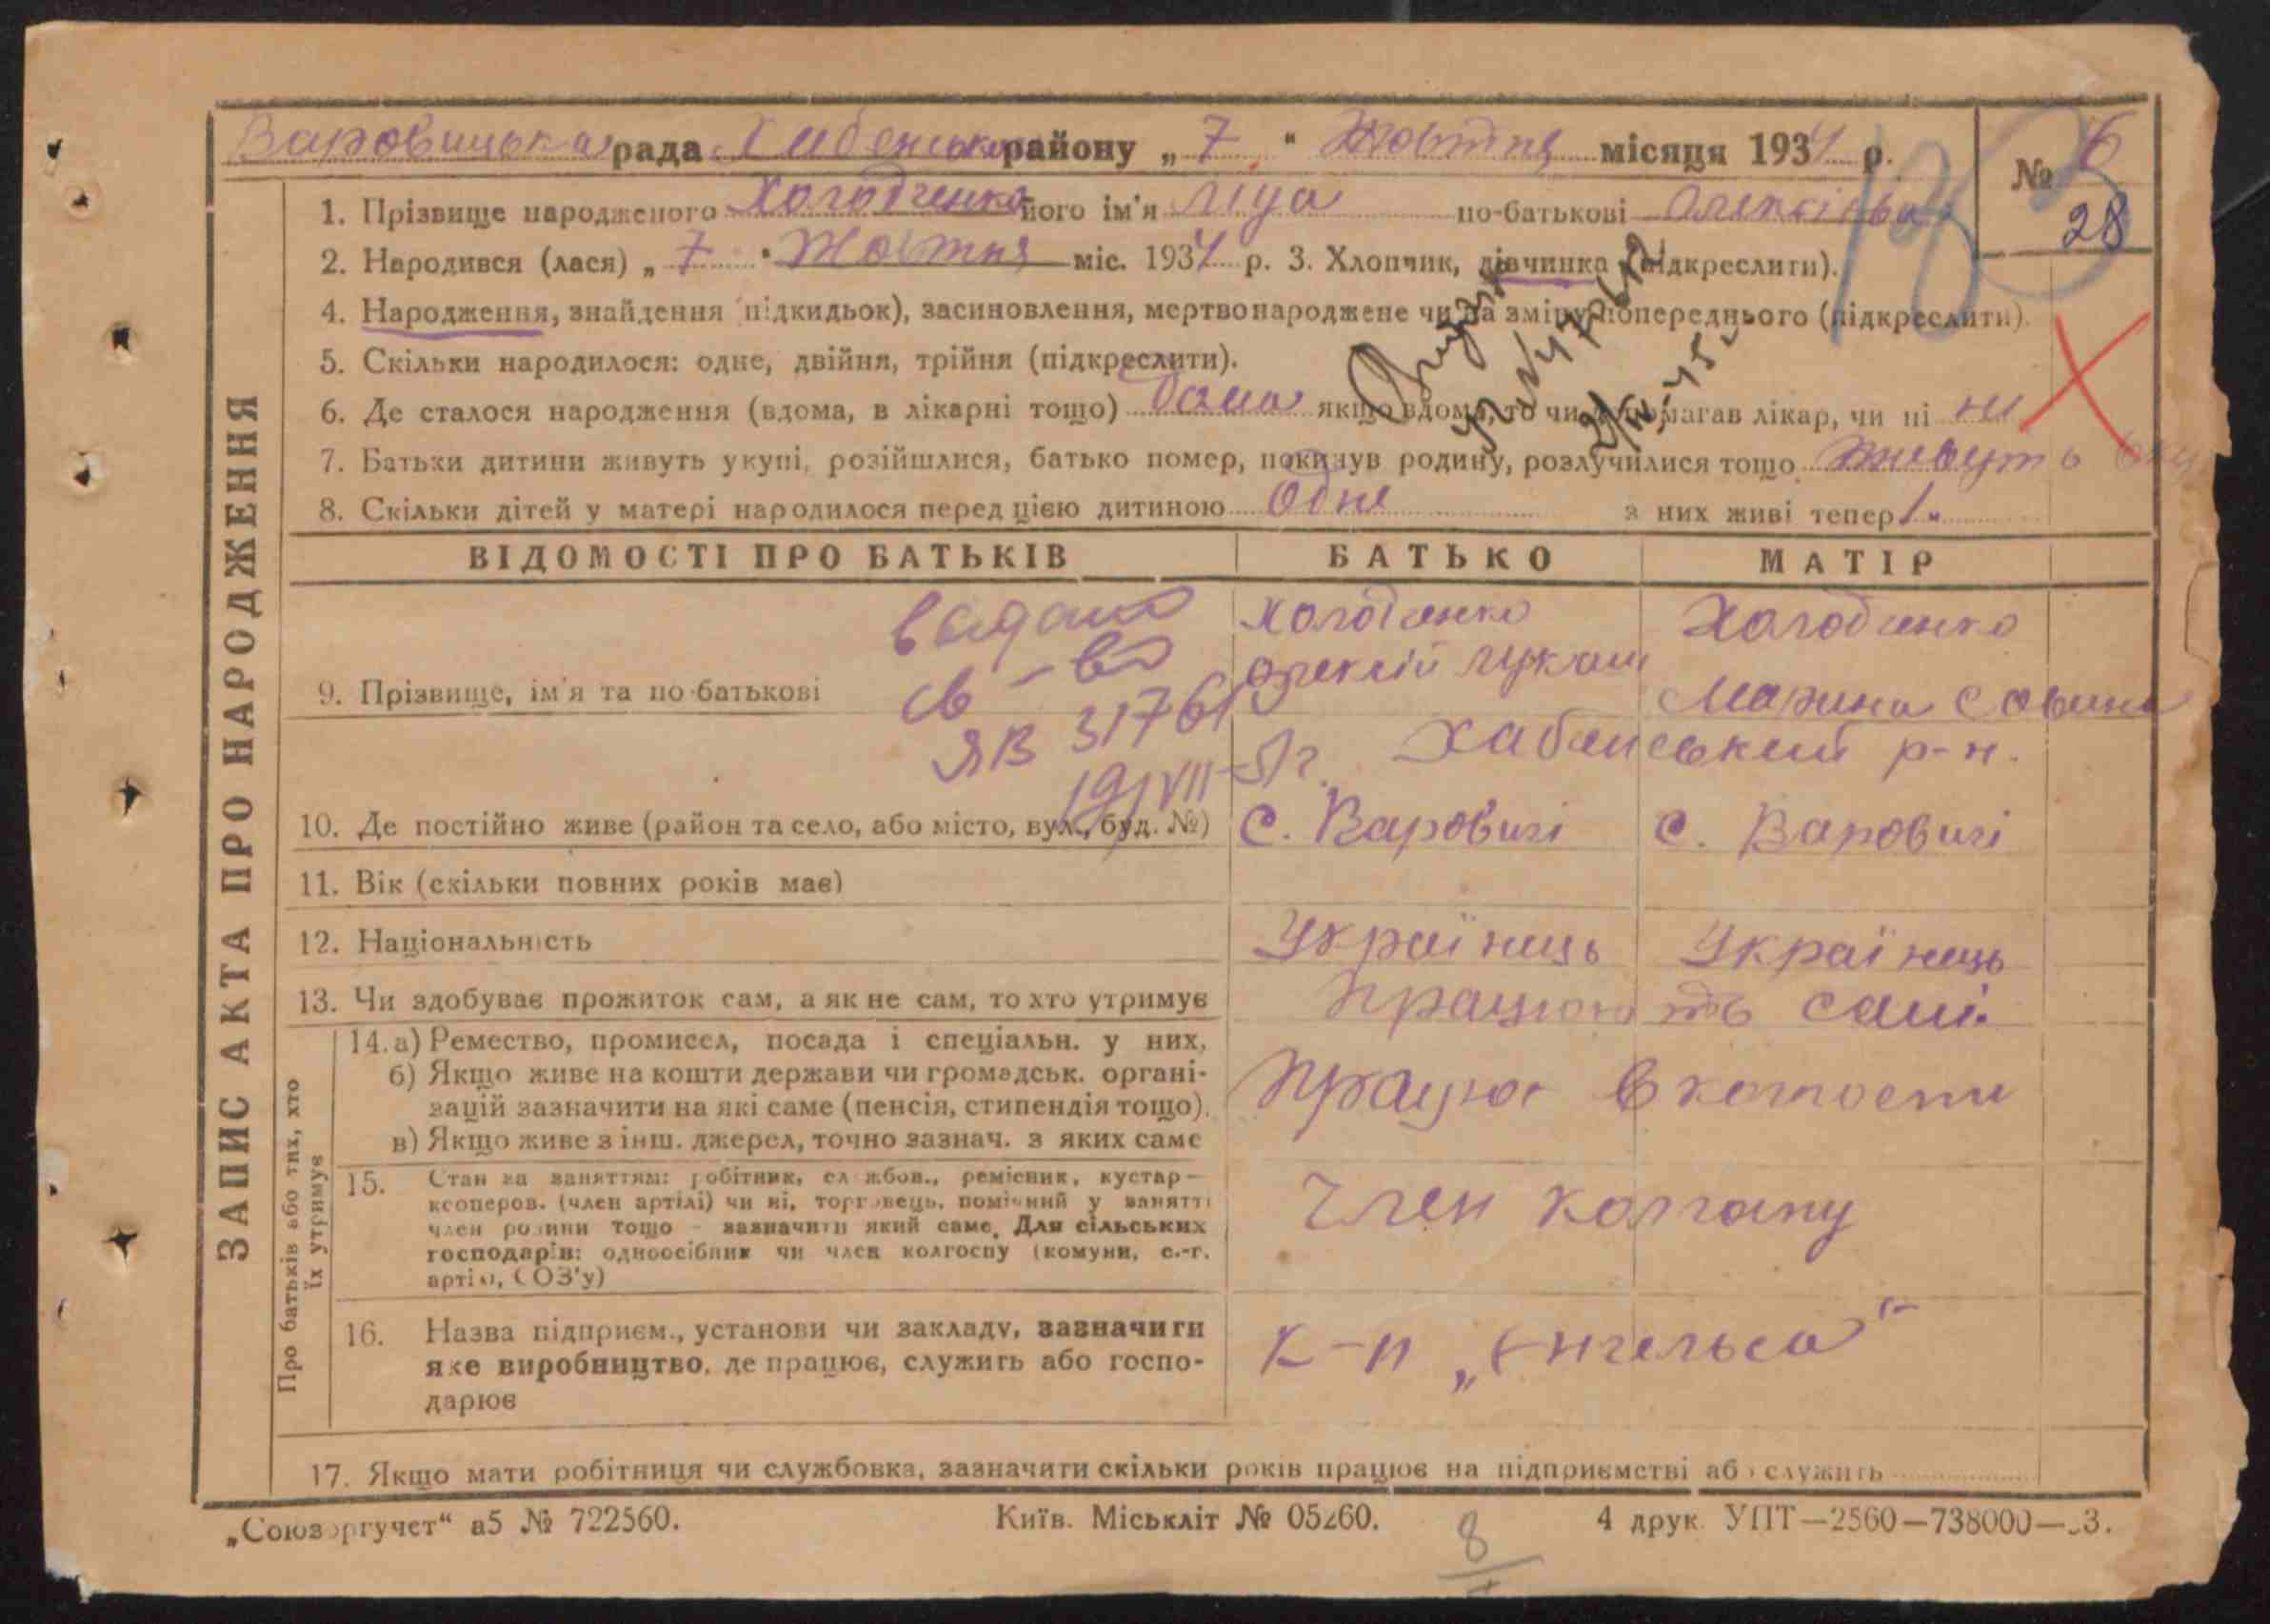 Варовицька рада Хабенського району „ 7 “ Жовтня місяця 1934 р.
№ 6
28
1. Прізвище народженого Холодченко його ім'я Ліда по-батькові Олексіївна
2. Народився (лася) „ 7 “ Жовтня міс. 1934 р. 3. Хлопчик, дівчинка (підкреслити).
4. Народження, знайдення (підкидьок), засиновлення, мертвонароджене чи на зміну попереднього (підкреслити).
5. Скільки народилося: одне, двійня, трійня (підкреслити).
6. Де сталося народження (вдома, в лікарні тощо) дома якщо вдома, то чи допомагав лікар, чи ні ні
7. Батьки дитини живуть укупі, розійшлися, батько помер, покинув родину, розлучилися тощо живуть вку
8. Скільки дітей у матері народилося перед цією дитиною Одне з них живі тепер 1
ВІДОМОСТІ ПРО БАТЬКІВ БАТЬКО МАТІР
видано
св-во
ЯВ 31761
19/VII-51г.
9. Прізвище, ім'я та по-батькові
Холодченко Олексій Лукаш
Холодченко Марина Совина
Хабенський р-н.
10. Де постійно живе (район та село, або місто, вул., буд. №) с. Варовичі с. Варовичі
11. Вік (скільки повних років має)
12. Національність Українець Українець
13. Чи здобуває прожиток сам, а як не сам, то хто утримує Працюють самі
14. а) Ремество, промисел, посада і спеціальн. у них,
б) Якщо живе на кошти держави чи громадськ. органі-
зацій зазначити на які саме (пенсія, стипендія тощо),
в) Якщо живе з інш. джерел, точно зазнач. з яких саме
Працює в колгоспи
15. Стан за заняттям: робітник, службов., ремісник, кустар—
кооперов. (член артілі) чи ні, торговець, помічний у занятті
член родини тощо – зазначити який саме. Для сільських
господарів: одноосібник чи член колгоспу (комуни, с.-г.
артілі, СОЗ'у)
Член колгоспу
16. Назва підприєм., установи чи закладу, зазначити
яке виробництво, де працює, служить або госпо-
дарює
к-п „Енгельса“
17. Якщо мати робітниця чи службовка, зазначити скільки років працює на підприємстві або служить
ЗАПИС АКТА ПРО НАРОДЖЕННЯ
Про батьків або тих, хто
їх утримує
„Союзоргучет“ а5 № 722560. Київ. Міськліт № 05260. 4 друк. УПТ—2560—738000—33.
8